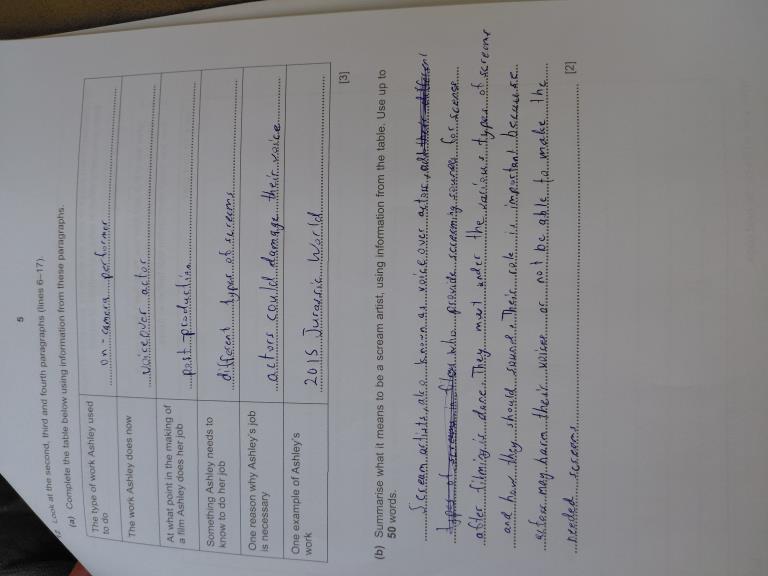 5
Look at the second, third and fourth paragraphs (lines 6–17).
(a) Complete the table below using information from these paragraphs.
The type of work Ashley used to do
on-camera performer
The work Ashley does now
voiceover actor
At what point in the making of a film Ashley does her job
post-production
Something Ashley needs to know to do her job
different types of screams
One reason why Ashley's job is necessary
actors could damage their voice
One example of Ashley's work
2015 Jurassic World
[3]
(b) Summarise what it means to be a scream artist, using information from the table. Use up to
50 words.
Scream artists, also known as voice over actors,
who provide screaming sounds for scenes
after filming is done. They must under the various types of screams
and how they should sound. Their role is important because
actors may harm their voice or not be able to make the
needed screams
[2]